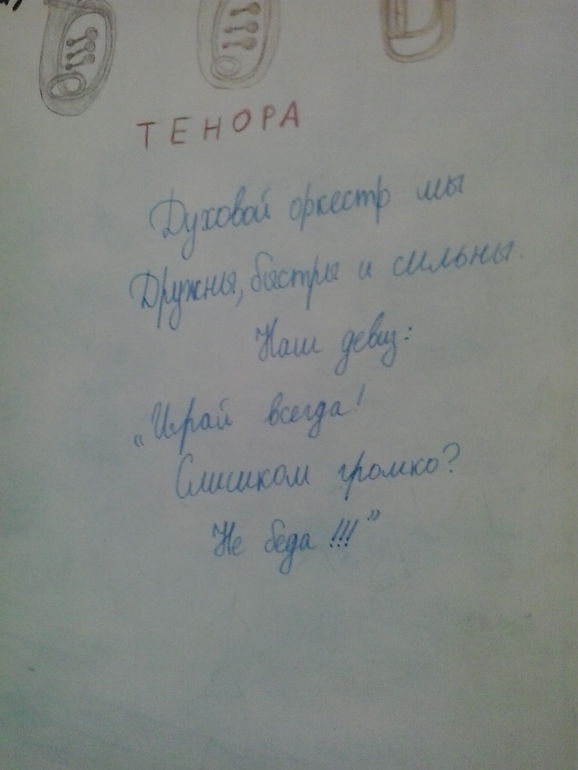 ТЕНОРА
Духовой оркестр мы
Дружны, быстры и сильны.
Наш девиз:
„Играй всегда!
Слишком громко?
Не беда!!!”